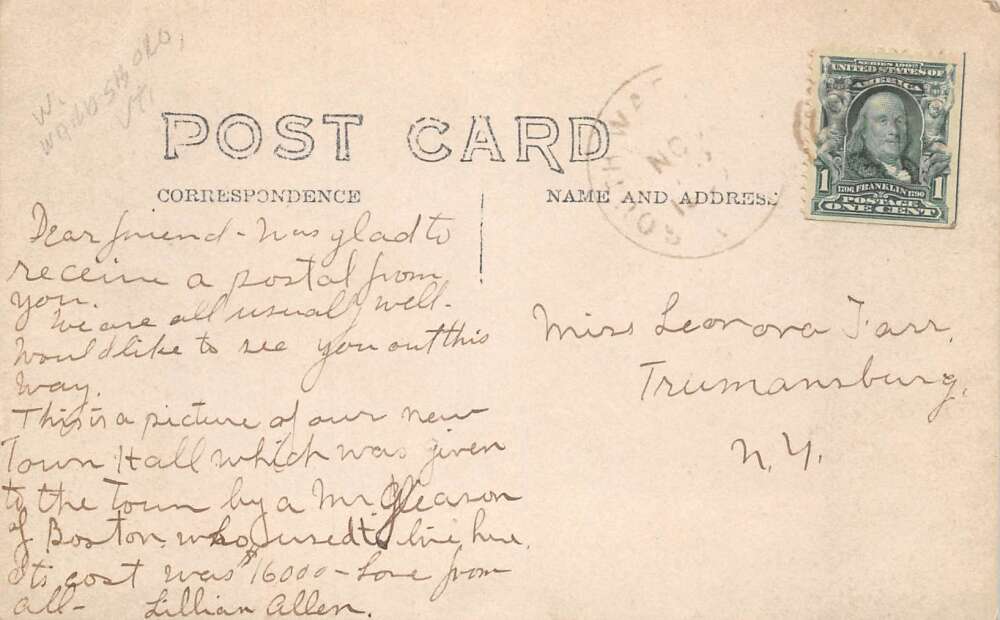 W.
WARDSBORO,
VT,
POST CARD
CORRESPONDENCE
NAME AND ADDRESS
SERIES 1902
UNITED STATES OF
AMERICA
1706 FRANKLIN 1790
1 POSTAGE 1
ONE CENT
Dear friend - Was glad to
receive a postal from
you.
We are all usually well.
Would like to see you out this
way.
This is a picture of our new
Town Hall which was given
to the Town by a Mr Gleason
of Boston, who used to live here.
Its cost was $16000 - Love from
all - Lillian Allen.
Miss Leonora Farr,
Trumansburg,
N.Y.